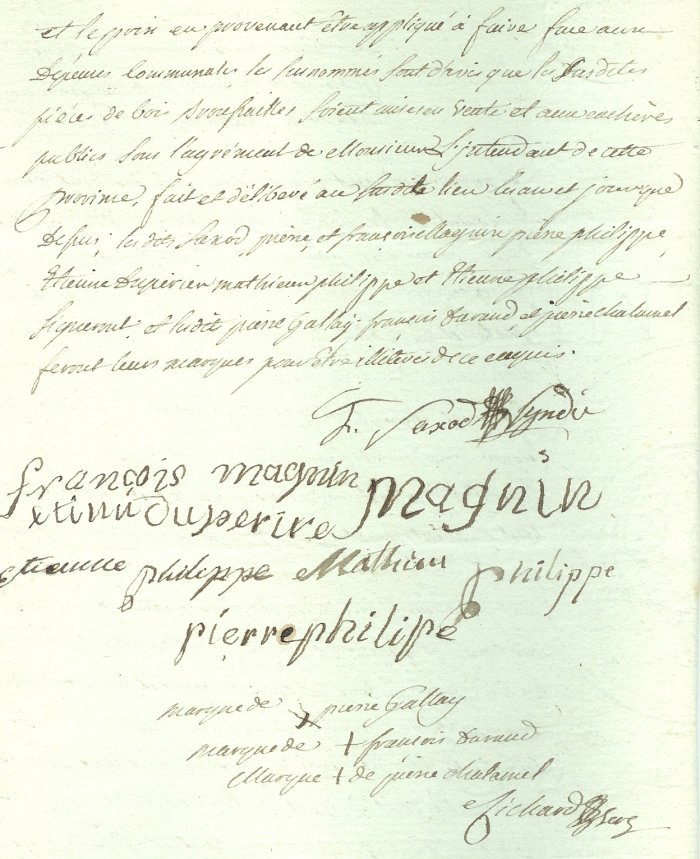 et le prix en provenant être appliqué à faire face aux
Dépenses Communales les susnommés sont davis que les susdites
piéces de bois soient mises en vente et aux enchères
publics sous l'agrément de Monsieur L'jntendant de cette
province, fait et délibéré au susdit lieu les an et jour que
Dessus, les dits Saxod, pierre, et françois Magnin, pierre philippe,
Etienne Duperier mathieu philippe et Etienne philippe
signeront, et lesdit pierre Gallay françois Favaud, et pierre chalamel
feront leurs marques pour être illiterés de ce enquis.
f. Saxod Syndic
françois magnin
magnin
Duperire
Etienne philippe Mathieu philippe
pierre philipe
marque de pierre Gallay
marque de + françois Favaud
Marque + de pierre chalamel